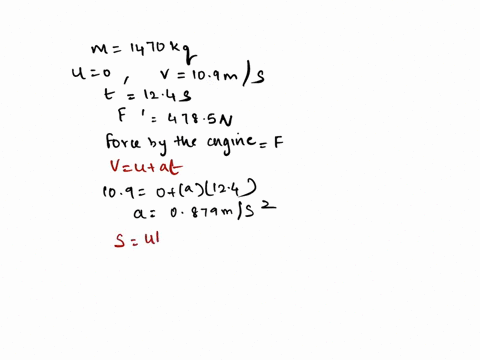 m = 1470 kg
u = 0 , v = 10.9 m/s
t = 12.4 s
F' = 478.5 N
Force by the engine = F
V = u + at
10.9 = 0 + (a)(12.4)
a = 0.879 m/s²
S = ul